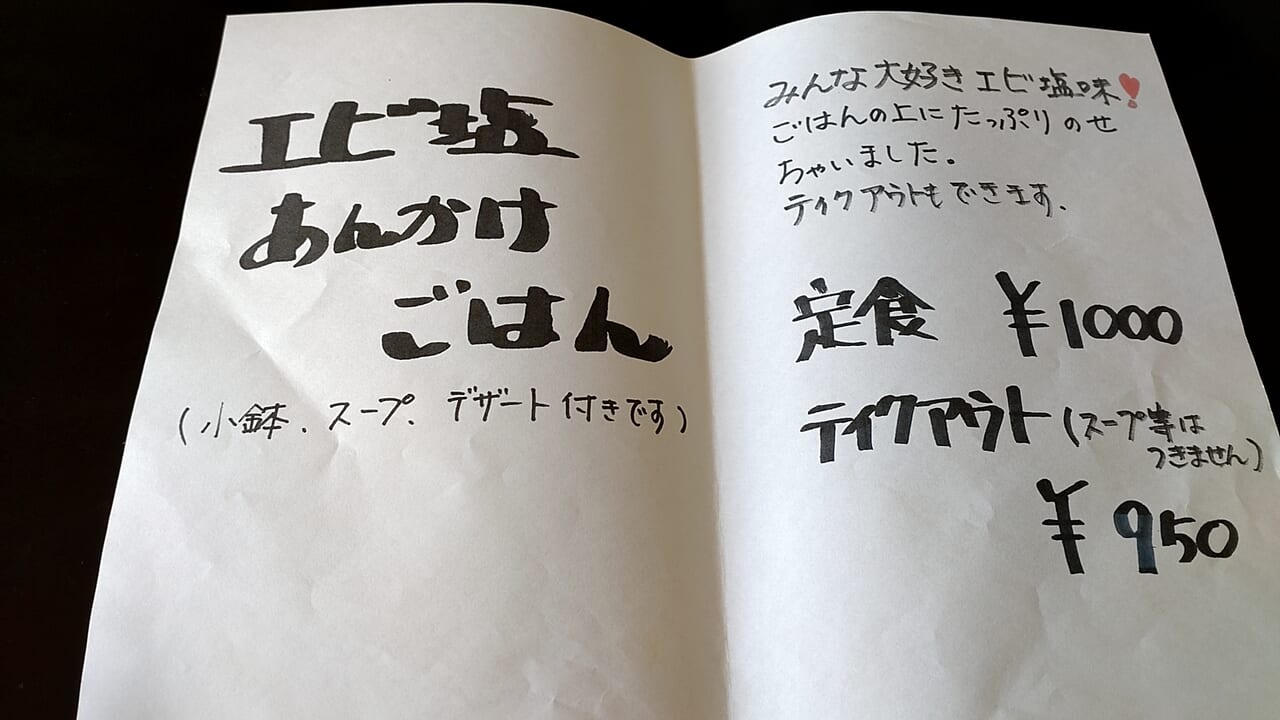 エビ塩
あんかけ
ごはん
(小鉢、スープ、デザート付きです)
みんな大好きエビ塩味❣
ごはんの上にたっぷりのせ
ちゃいました。
テイクアウトもできます。
定食 ¥1000
テイクアウト(スープ等は
つきません)
¥950